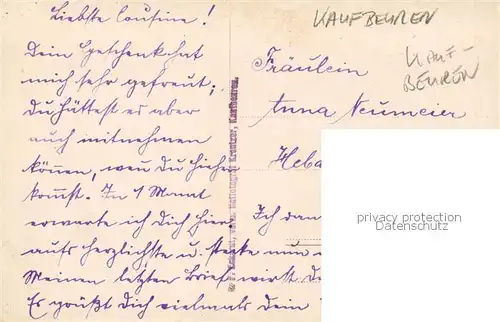 Liebste Cousine!
Dein Geschenk hat
mich sehr gefreut;
du hättest es aber
auch mitnehmen
können, wenn Du hieher
kommst. In 1 Monat
erwarte ich Dich hier
aufs herzlichste u. stecke nun
Meinen letzten Brief wirst
Es grüßt Dich vielmals dein
KAUFBEUREN
KAUF-
BEUREN
Fräulein
Anna Neumeier
Heba
Ich dan
privacy protection
watermark
Kreutzer, Kaufbeuren.